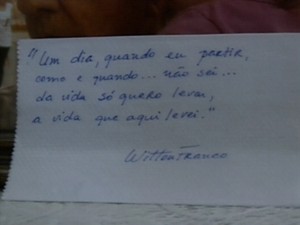 "Um dia, quando eu partir,
como e quando... não sei...
da vida só quero levar,
a vida que aqui levei."
Wilton Franco